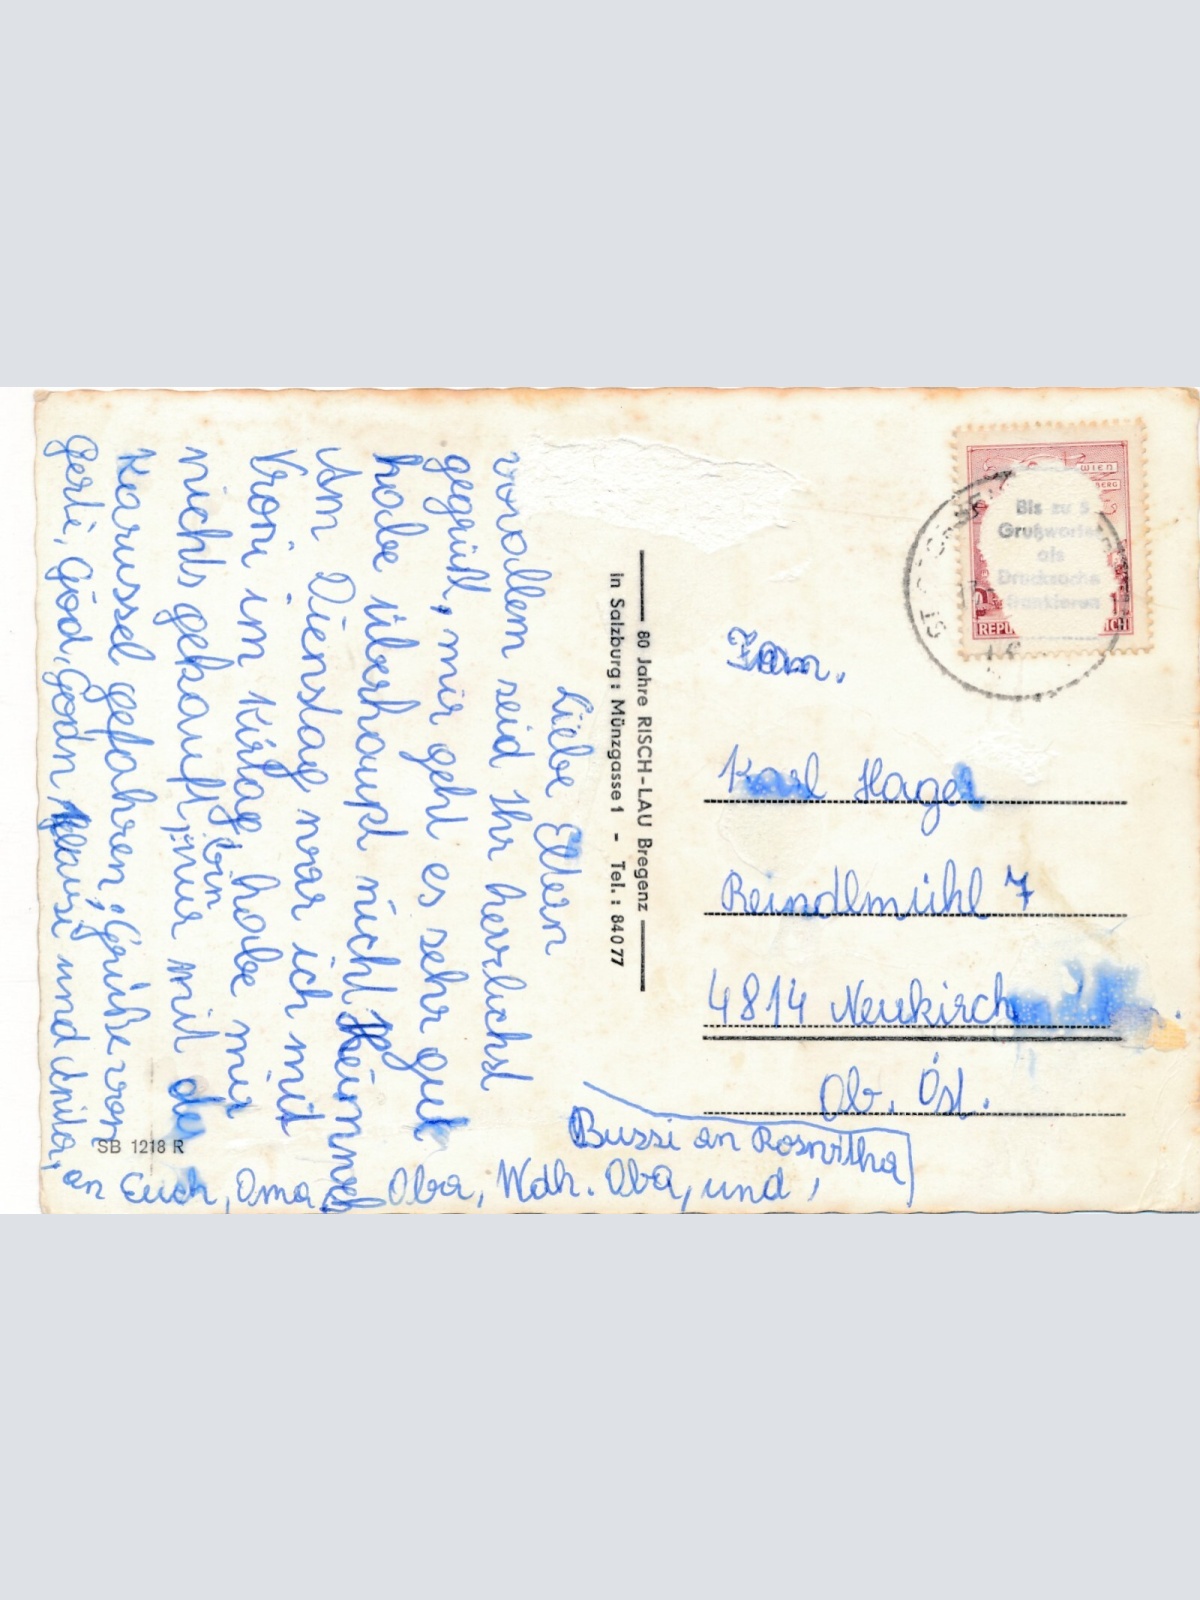 Liebe Eltern
vorallem seid Ihr herzlichst
gegrüßt, mir geht es sehr gut
habe überhaupt nicht Heimweh
Am Dienstag war ich mit
Vroni im Kirtag habe mir
nichts gekauft, bin nur mit da
Karussel gefahren; Grüße von
Gerti, God, Godn Klausi und Anita,
an Euch, Oma, Oba, Wdh. Oba, und,
Bussi an Roswitha
80 Jahre RISCH-LAU Bregenz
in Salzburg: Münzgasse 1 - Tel.: 84077
SB 1218 R
WIEN
Bis zu 5
Grußworte
als
Drucksache
frankieren
Fam.
Karl Hagel
Reindlmühl 7
4814 Neukirch
Ob. Öst.